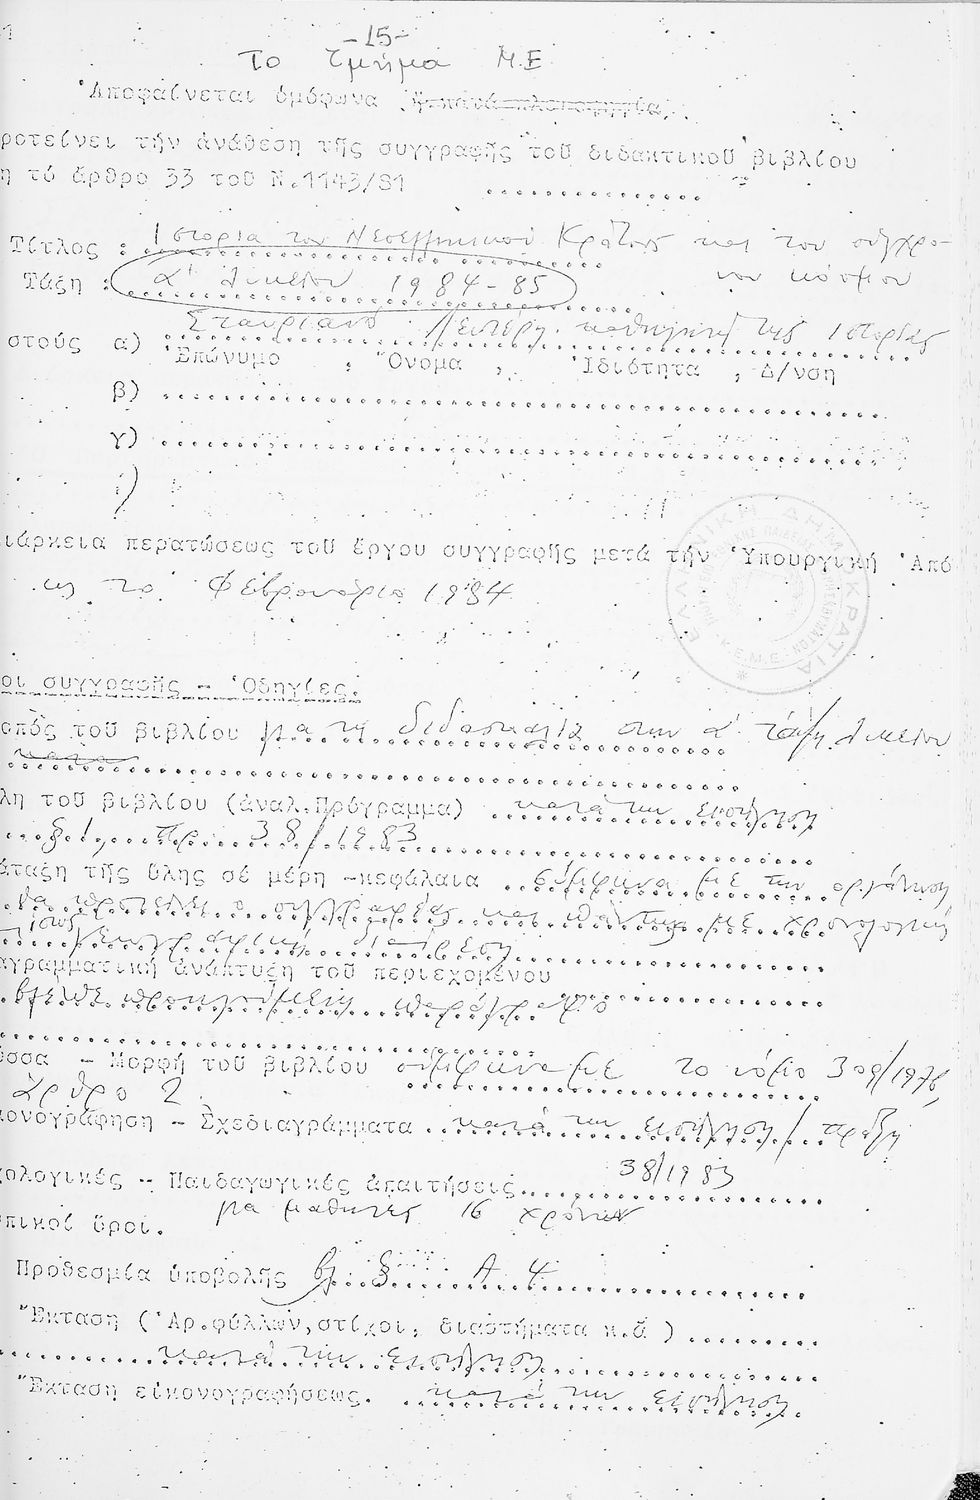 -15-
Το Τμήμα Μ.Ε
Ἀποφαίνεται ὁμόφωνα ἤ κατά πλειοψηφία
ροτείνει τήν ἀνάθεση τῆς συγγραφῆς τοῦ διδακτικοῦ βιβλίου
η τό ἄρθρο 33 τοῦ Ν.1143/81 ...............
Τίτλος : Ιστορία του Νεοελληνικού Κράτους και του σύγχρο-
νου κόσμου
Τάξη : α' Λυκείου 1984-85
Σταυριανό Λευτέρη καθηγητή της Ιστορίας
στούς α)
Ἐπώνυμο , Ὄνομα , Ἰδιότητα , Δ/νση
β)
γ)
ιάρκεια περατώσεως τοῦ ἔργου συγγραφῆς μετά τήν Ὑπουργική Ἀπό
ως το Φεβρουάριο 1984
ΕΛΛΗΝΙΚΗ ΔΗΜΟΚΡΑΤΙΑ
Κ.Ε.Μ.Ε.
οι συγγραφῆς - Ὁδηγίες.
οπός τοῦ βιβλίου για τη διδασκαλία στην α' τάξη Λυκείου
κατα
λη τοῦ βιβλίου (ἀναλ.Πρόγραμμα) κατά την εισήγηση
38/1983
άταξη τῆς ὕλης σέ μέρη -κεφάλαια σύμφωνα με την οργάνωση
θα προτείνει ο συγγραφέας και πάντως με χρονολογική
ίσως γεωγραφική διαίρεση
αγραμματική ἀνάπτυξη τοῦ περιεχομένου
βλέπε προηγούμενη παράγραφο
ῶσσα - Μορφή τοῦ βιβλίου σύμφωνα με το νόμο 309/1976,
άρθρο 2
κονογράφηση - Σχεδιαγράμματα κατά την εισήγηση / πράξη
38/1983
χολογικές - Παιδαγωγικές ἀπαιτήσεις
για μαθητές 16 χρόνων
πικοί ὅροι.
Προθεσμία ὑποβολῆς βλ. § Α 4
Ἔκταση (Ἀρ.φύλλων,στίχοι, διαστήματα κ.ἄ )
κατά την εισήγηση
Ἔκταση εἰκονογραφήσεως. κατά την εισήγηση